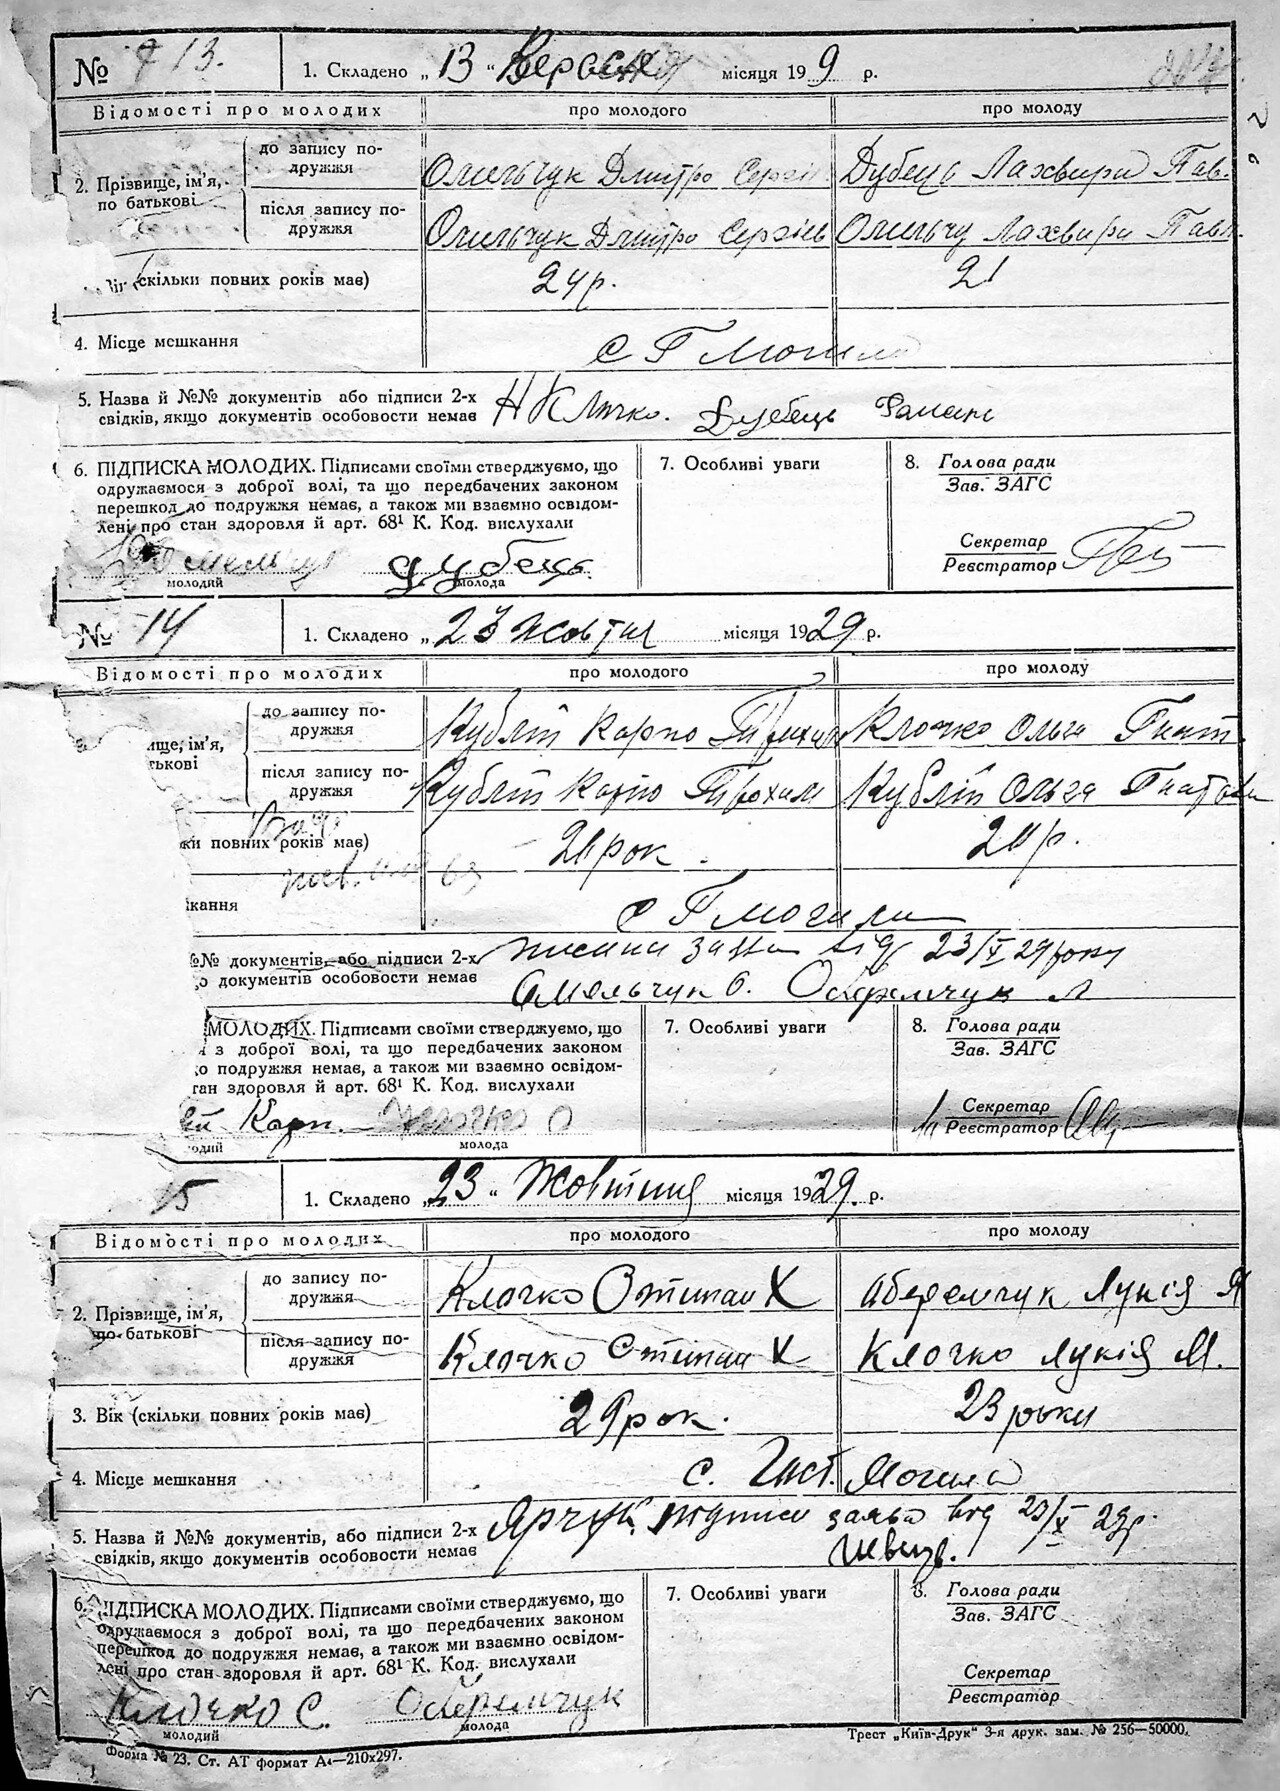 № 13. 1. Складено „ 13 “ Вересня місяця 19 9 р.
Відомості про молодих про молодого про молоду
2. Прізвище, ім'я, по батькові
до запису подружжя Омельчук Дмитро Сергіів Дубець Лахвира Пав.
після запису подружжя Омельчук Дмитро Сергіів Омельчу Лахвира Павл.
(скільки повних років має) 24р. 21
4. Місце мешкання с П Могила
5. Назва й №№ документів або підписи 2-х
свідків, якщо документів особовости немає Дубець
6. ПІДПИСКА МОЛОДИХ. Підписами своїми стверджуємо, що
одружаємося з доброї волі, та що передбачених законом
перешкод до подружжя немає, а також ми взаємно освідом-
лені про стан здоров я й арт. 68¹ К. Код. вислухали
7. Особливі уваги
8. Голова ради
Зав. ЗАГС
Секретар
Реєстратор
Омельчук Дубець.
молодий молода
№ 14 1. Складено „ 23 жовтня місяця 19 29 р.
Відомості про молодих про молодого про молоду
ище, ім'я,
тькові
до запису подружжя Кублій Карпо Трохим Клочко Ольга Гнат.
після запису подружжя Кублій Карпо Трохим Кублій Ольга Гнатова
ки повних років має) рок. р.
кання с П Могила
№№ документів, або підписи 2-х
о документів особовости немає заява від 23/X 29 року
Омельчук О. Оберемчук Л
МОЛОДИХ. Підписами своїми стверджуємо, що
я з доброї волі, та що передбачених законом
о подружжя немає, а також ми взаємно освідом-
тан здоровля й арт. 68¹ К. Код. вислухали
7. Особливі уваги
8. Голова ради
Зав. ЗАГС
Секретар
Реєстратор
ій Карп. Клочко О
одий молода
15 1. Складено „ 23 “ Жовтня місяця 19 29. р.
Відомості про молодих про молодого про молоду
2. Прізвище, ім'я, по батькові
до запису подружжя Клочко Стипан Х Аберемчук Лукія М
після запису подружжя Клочко Стипан Х Клочко Лукія М.
3. Вік (скільки повних років має) 29 рок. 23 роки
4. Місце мешкання с. Гнст. Могила
5. Назва й №№ документів, або підписи 2-х
свідків, якщо документів особовости немає Ярчук. підписи заява від 23/X 29р.
Швець.
6. ПІДПИСКА МОЛОДИХ. Підписами своїми стверджуємо, що
одружаємося з доброї волі, та що передбачених законом
перешкод до подружжя немає, а також ми взаємно освідом-
лені про стан здоровля й арт. 68¹ К. Код. вислухали
7. Особливі уваги
8. Голова ради
Зав. ЗАГС
Секретар
Реєстратор
Клочко С. Оберемчук
молодий молода
Форма № 23. Ст. АТ формат А₄—210х297.
Трест „Київ-Друк“ 3-я друк. зам. № 256—50000.